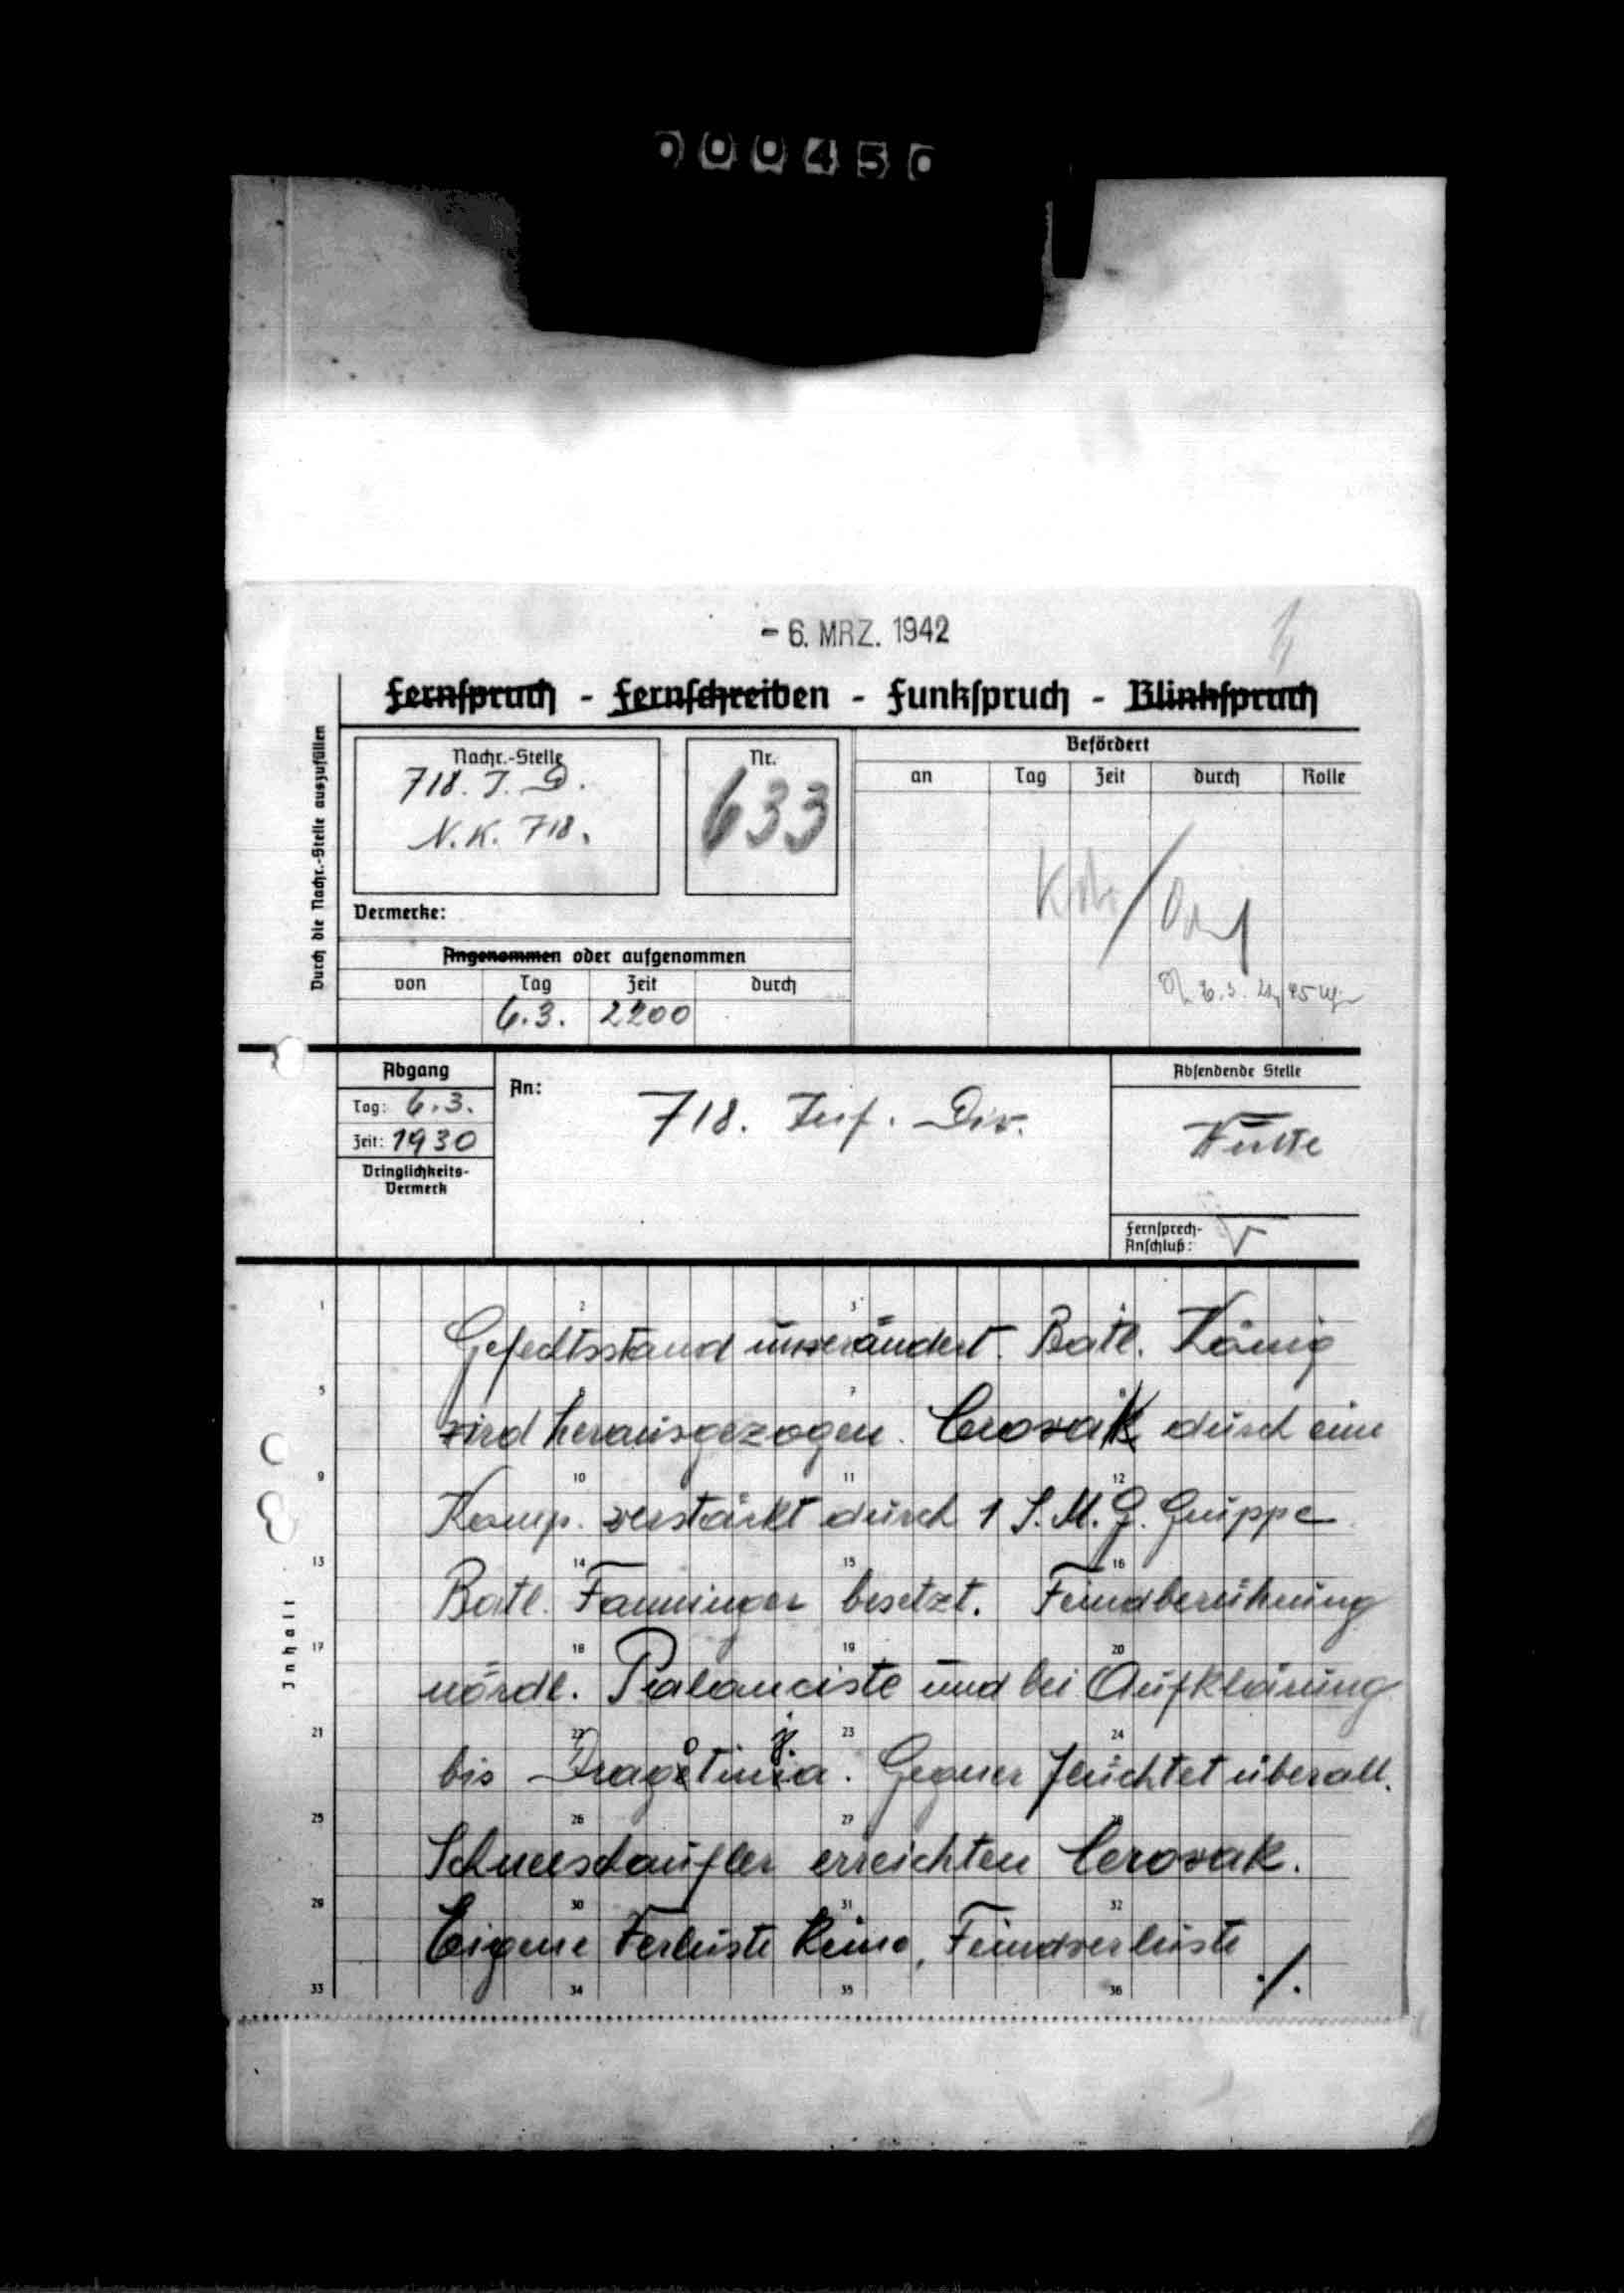 000450
- 6. MRZ. 1942
Fernspruch - Fernschreiben - Funkspruch - Blinkspruch
Durch die Nachr.-Stelle auszufüllen
Nachr.-Stelle
718. I. D.
N. K. 718.
Nr.
633
Befördert
an Tag Zeit durch Rolle
Vermerke:
Angenommen oder aufgenommen
von Tag Zeit durch
6.3. 2200
Abgang
Tag: 6.3.
Zeit: 1930
Dringlichkeits-
Vermerk
An:
718. Inf. Div.
Absendende Stelle
Fernsprech-
Anschluß:
Inhalt
1 2 3 4
Gefechtsstand unverändert. Batl. König
5 7
wird herausgezogen. Cerovak durch eine
9 10 11 12
Komp. verstärkt durch 1 S. M. G. Gruppe
13 14 15 16
Batl. Fanninger besetzt. Feindberührung
17 18 19 20
nördl. und bei Aufklärung
21 22 23 24
bis Dragotinja. Gegner flüchtet überall.
25 26 27 28
Schneeschaufler erreichten Cerovak.
29 30 31 32
Eigene Verluste keine, Feindverluste
./.
33 34 35 36